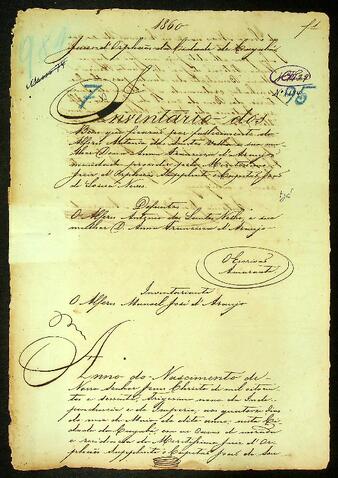 1860
f 1
Juizo d'Orphãos da Cidade de Cuyabá
984
Masso 74
7
95
Inventario dos
Bens que ficarão por fallecimento do
Alferes Antonio dos Santos Velho, e sua mu-
lher Dona Anna d'Araujo,
mandado proceder pelo
Juiz d'Orphãos Supplente o Capitão José
de Souza Neves.
Defuntos
O Alferes Antonio dos Santos Velho, e sua
mulher D. Anna d'Araujo
O Escrivão
Amarante
Inventariante
O Alferes Manoel José d'Araujo
Anno do Nascimento de
Nosso Senhor Jesus Christo de mil oitocen-
tos e sessenta, trigesimo nono da Inde-
pendencia e do Imperio, aos quatorze dias
do mez de Maio do dito anno, nesta Ci-
dade de Cuyabá em as casas de morada
e residencia do Meritissimo Juiz d'Or-
phãos Supplente o Capitão José de Sou